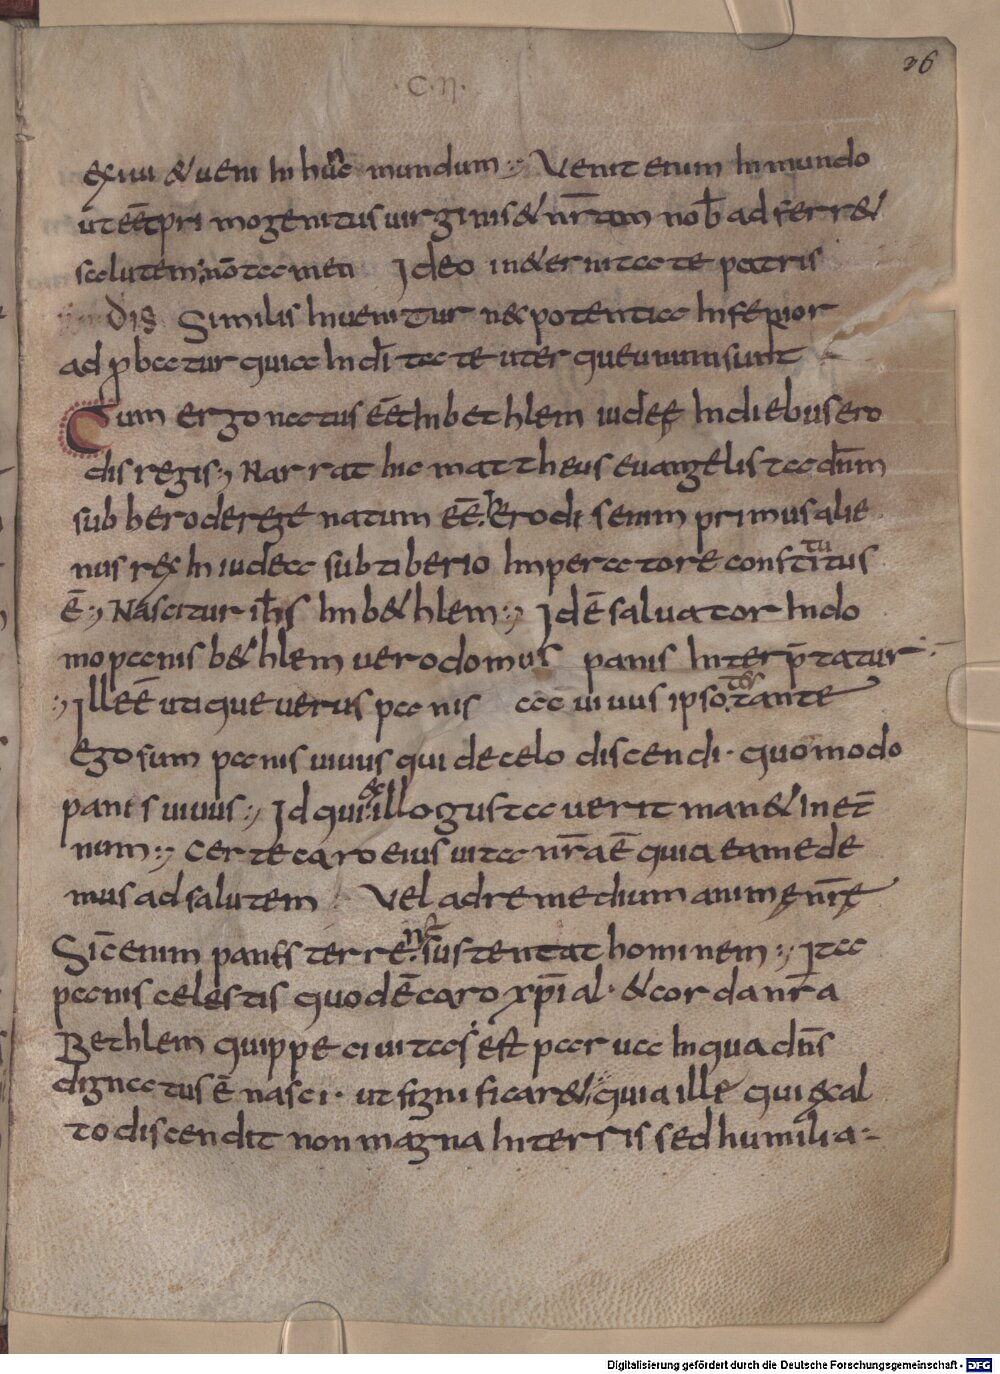 26
·C·N·
exiui & ueni In hūc mundum ·,· Venit enim In mundo
ut eēt pri mogenitus uirginis & nr̄tam nob̄ ad ferr&
salutem; nō tamen Ideo in&ernitate patris
dis Similis Inuenitur nec potentia Inferior
ad ꝓbatur quia In di tate uter que unum sunt
Cum ergo natus eēt In bethlem iudeę In diebus ero
dis regis ·, Narrat hic mattheus euangelista dn̄m
sub herode rege natum eē. herodi's enim primus alie
nus rex In iudea sub tiberio Imperatore constitutus
ē ·, Nascitur ih̄s In b&hlem ·,· Id ē saluator In do
mo panis b&hlem uero domus panis Interp̄tatur
·, Ille ē utique uerus panis ac uiuus ipso tes tante
Ego sum panis uiuus qui de celo discendi · quomodo
panis uiuus ·, Id qui ex illo gustauerit man& In et̄
num ·, Certe caro eius uita nr̄a ē quia eam ede
mus ad salutem Vel ad remedium animę nr̄ę
Sic̄ enim panis terre nꝰ sustentat hominem ·, Ita
panis celestis quod ē caro xp̄i al · & corda nr̄a
Bethlem quippe ciuitas est parua In qua dn̄s
dignatus ē nasci · ut significar& quia ille qui ex al
to discendit non magna Inter sis sed humilia-
Digitalisierung gefördert durch die Deutsche Forschungsgemeinschaft - DFG